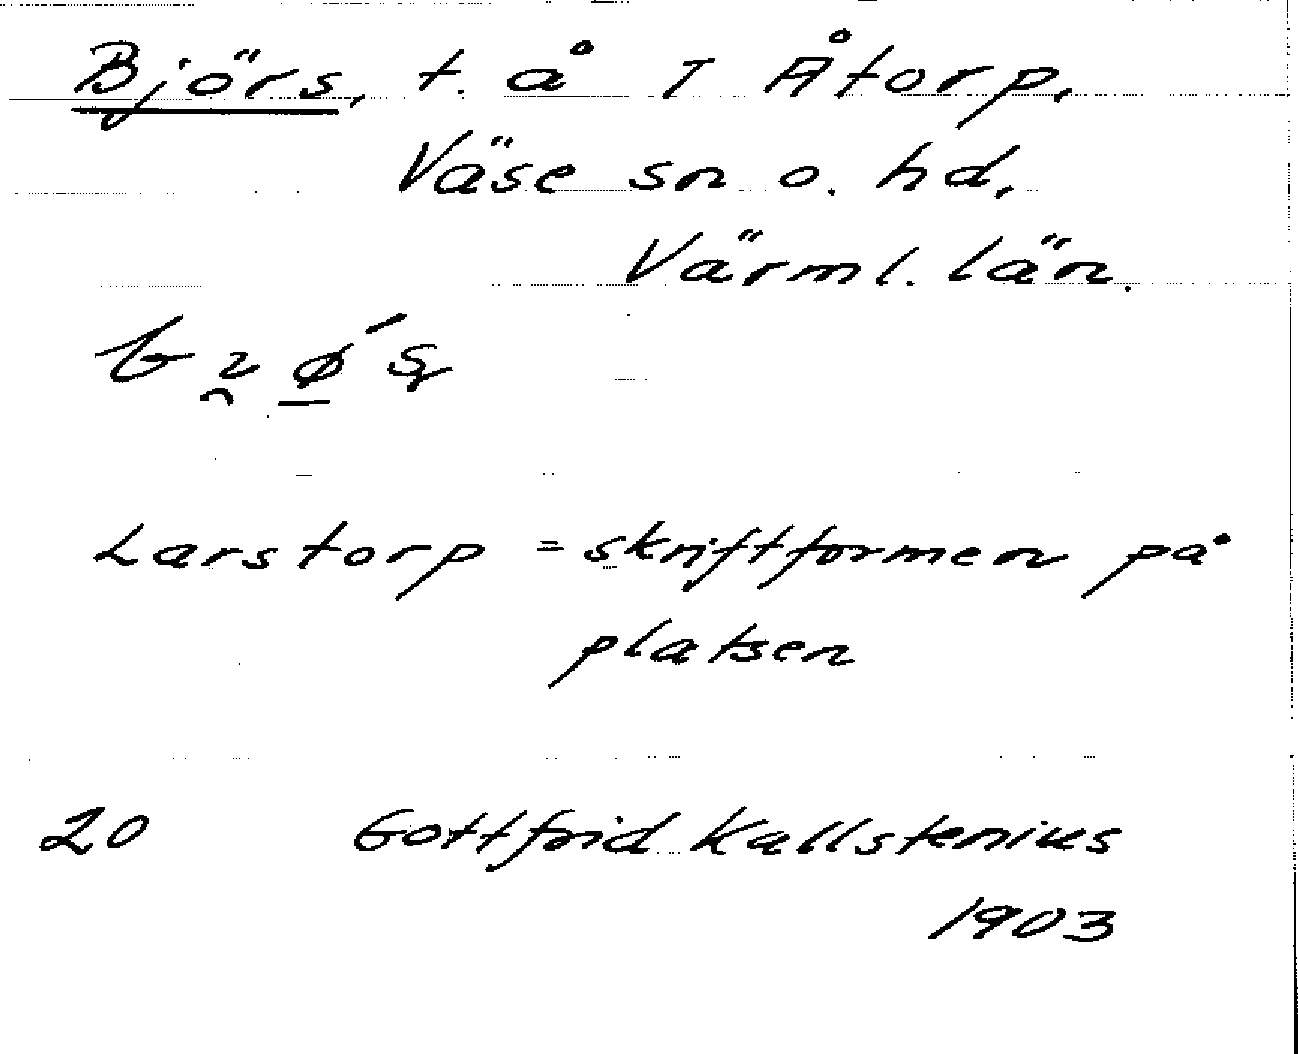 Björs, t. å I Åtorp,
Väse sn o. hd,
Värml. län.
Larstorp = skriftformen på
platsen
20 Gottfrid Kallstenius
1903